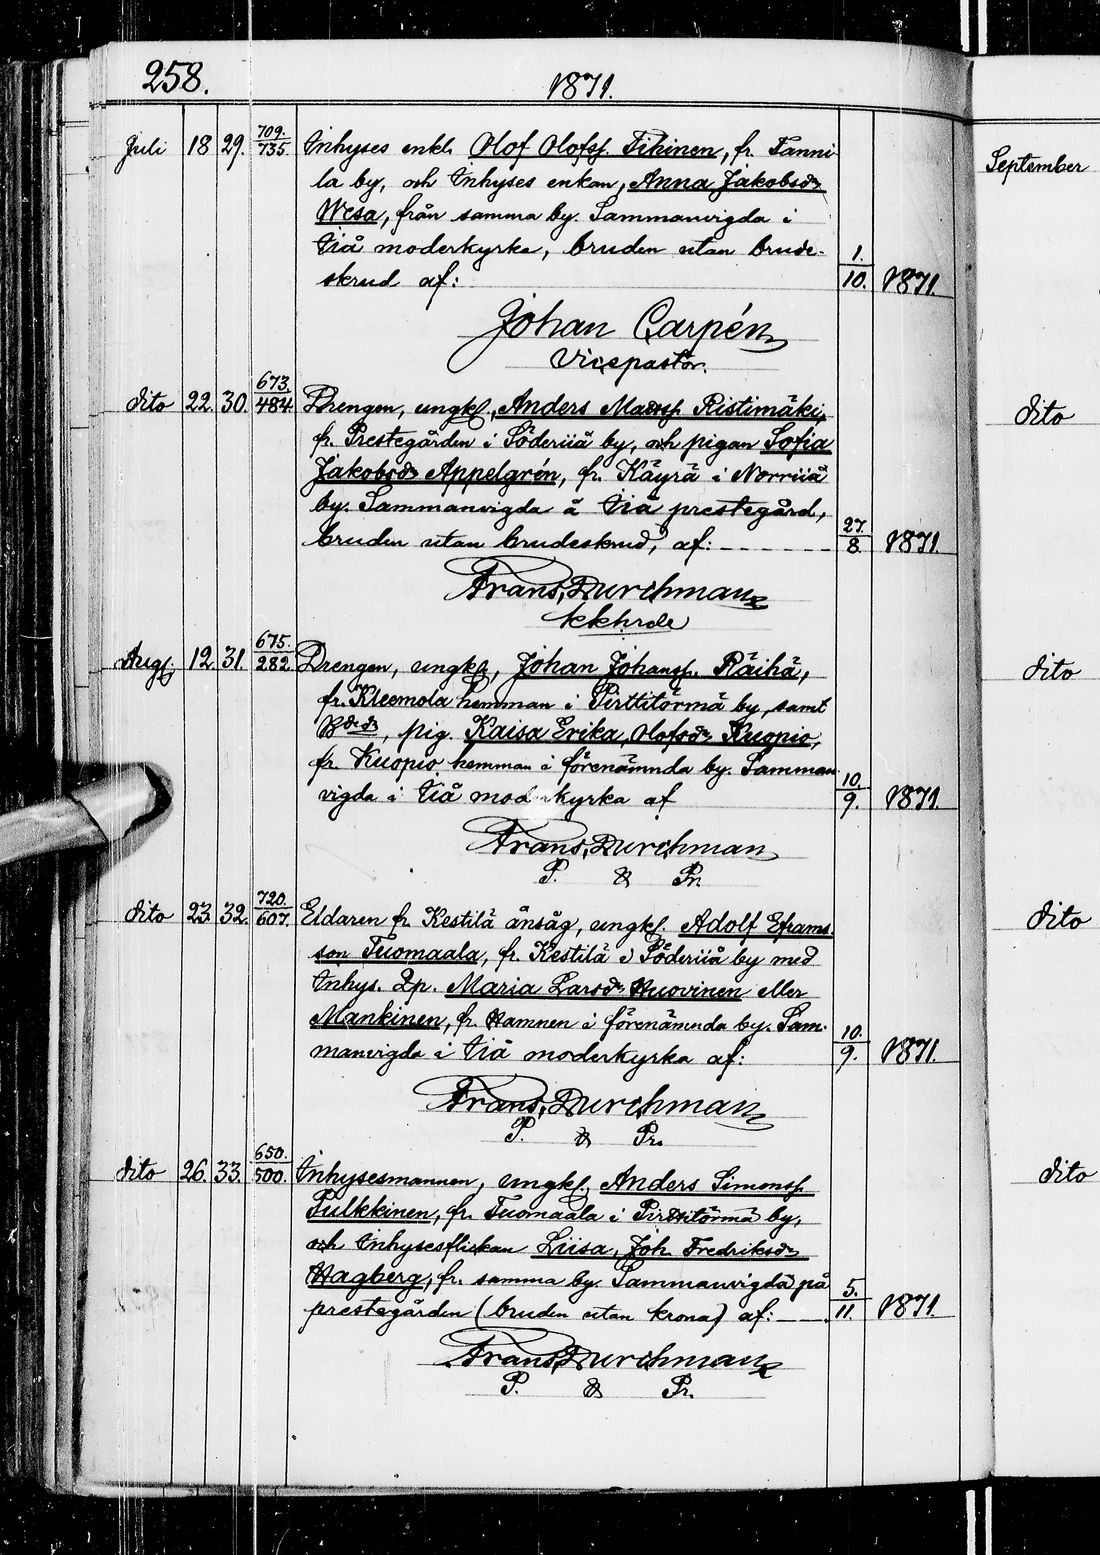 258.
1871.
Juli 18 29. 709. 735. Inhyses enkl. Olof Olofsf. Tihinen, fr. Tanni
la by, och Inhyses enkan, Anna Jakobsdr
Wesa, från samma by. Sammanvigda i
Iiå moderkyrka, bruden utan brude-
skrud af: 1. 10. 1871.
Johan Carpén
Vicepastor.
dito 22. 30. 673. 484. Drengen, ungkl, Anders Madsf Ristimäki,
fr. Prestegården i Söderiiå by, och pigan Sofia
Jakobsdr Appelgrén, fr. Käyrä i Norriiå
by. Sammanvigda å Iiå prestegård,
bruden utan brudeskrud, af: 27. 8. 1871.
Frans Durchman
Augf. 12. 31. 675. 282. Drengen, ungkl, Johan Johansf. Räihä,
fr. Kleemola hemman i Pirttitörmä by, samt
pig. Kaisa Erika, Olofsdr Kuopio,
fr. Kuopio hemman i förenämnda by. Samman
vigda i Iiå moderkyrka af 10. 9. 1871.
Frans Durchman
P. & Pr.
dito 23. 32. 720. 607. Eldaren fr. Kestilä ångsåg, ungkl. Adolf Eframs
son Tuomaala, fr. Kestilä i Söderiiå by med
Inhys. Qp. Maria Larsdr Huovinen eller
Mankinen, fr. Hamnen i förenämnda by. Sam-
manvigda i Iiå moderkyrka af: 10. 9. 1871.
Frans Durchman
P. & Pr.
dito 26. 33. 650. 500. Inhysesmannen, ungkl, Anders Simonsf
Pulkkinen, fr. Tuomaala i Pirttitörmä by,
och Inhysesflickan Liisa, Joh. Fredriksdr
Hagberg, fr. samma by. Sammanvigda på
prestegården (bruden utan krona) af: 5. 11. 1871.
Frans Durchman
P. & Pr.
September
dito
dito
dito
dito